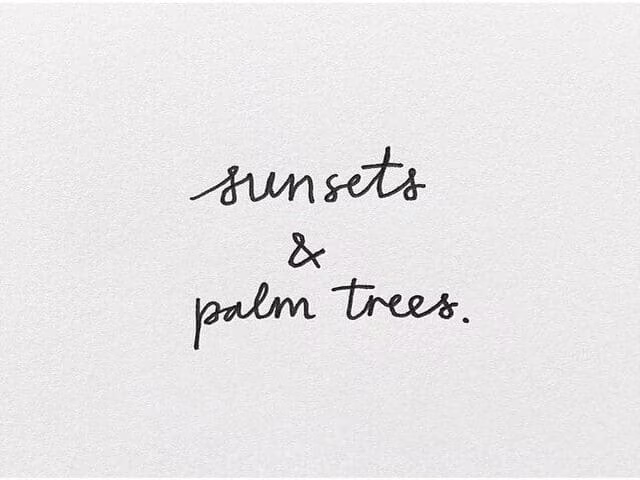 sunsets
&
palm trees.